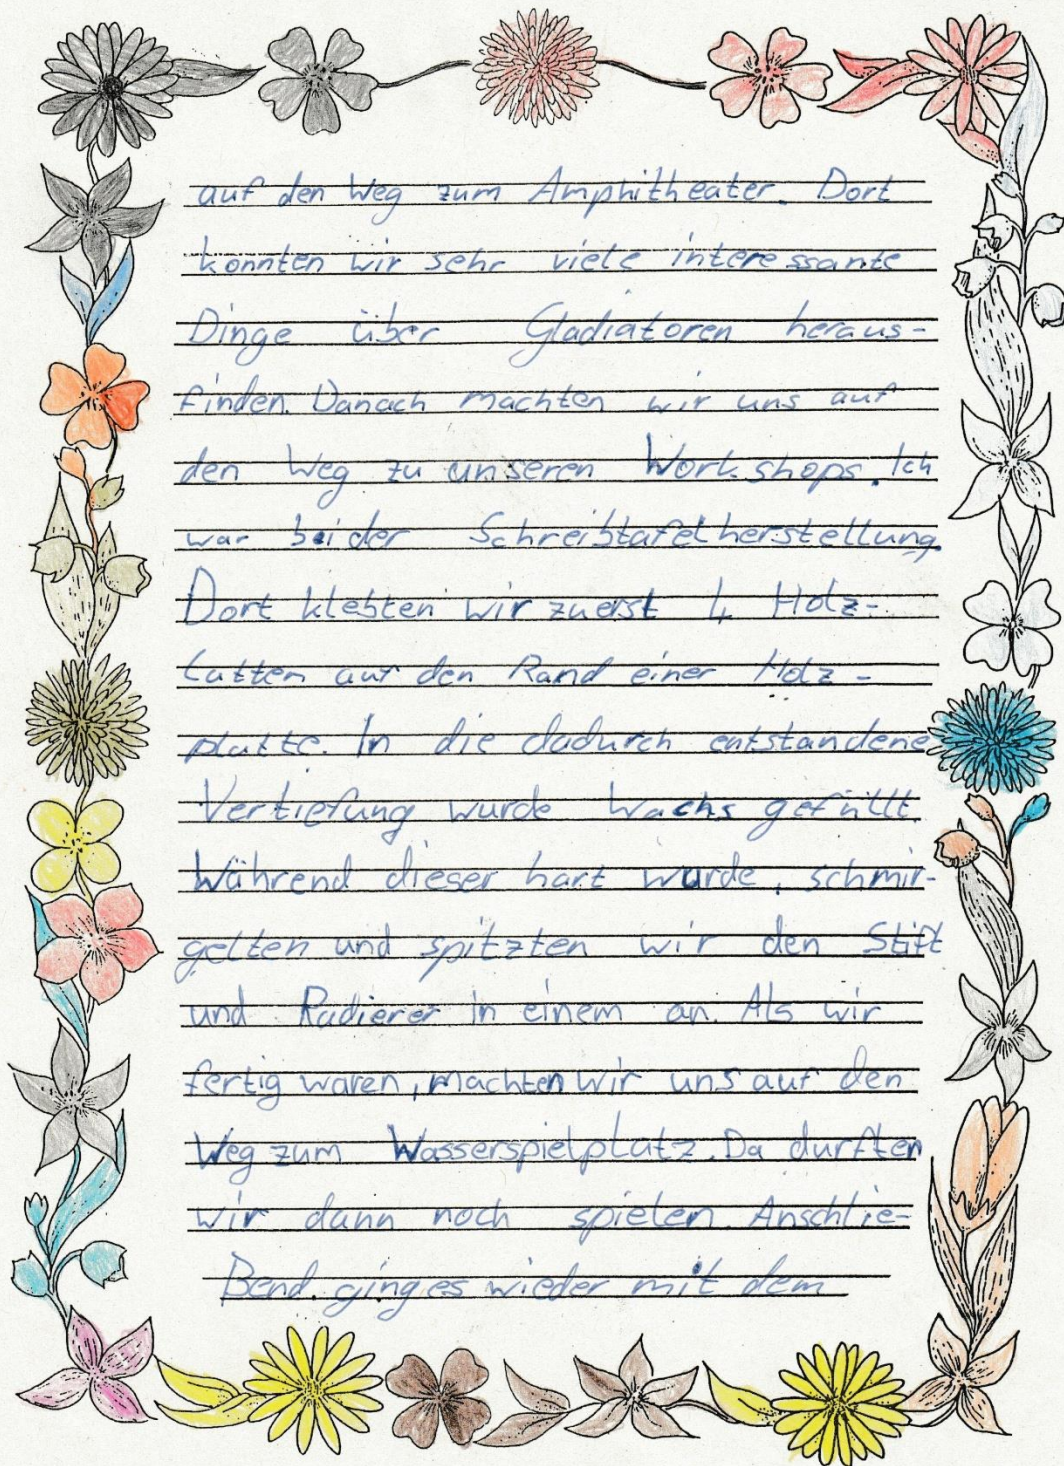 auf den Weg zum Amphitheater. Dort
konnten wir sehr viele interessante
Dinge über Gladiatoren heraus-
finden. Danach machten wir uns auf
den Weg zu unseren Workshops. Ich
war bei der Schreibtafelherstellung.
Dort klebten wir zuerst 4 Holz-
latten auf den Rand einer Holz-
platte. In die dadurch entstandene
Vertiefung wurde Wachs gefüllt.
Während dieser hart wurde, schmir-
gelten und spitzten wir den Stift
und Radierer in einem an. Als wir
fertig waren, machten wir uns auf den
Weg zum Wasserspielplatz. Da durften
wir dann noch spielen. Anschlie-
ßend ging es wieder mit dem